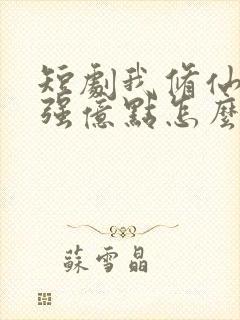 短劇我修仙
强億點怎麼
蘇雪晶